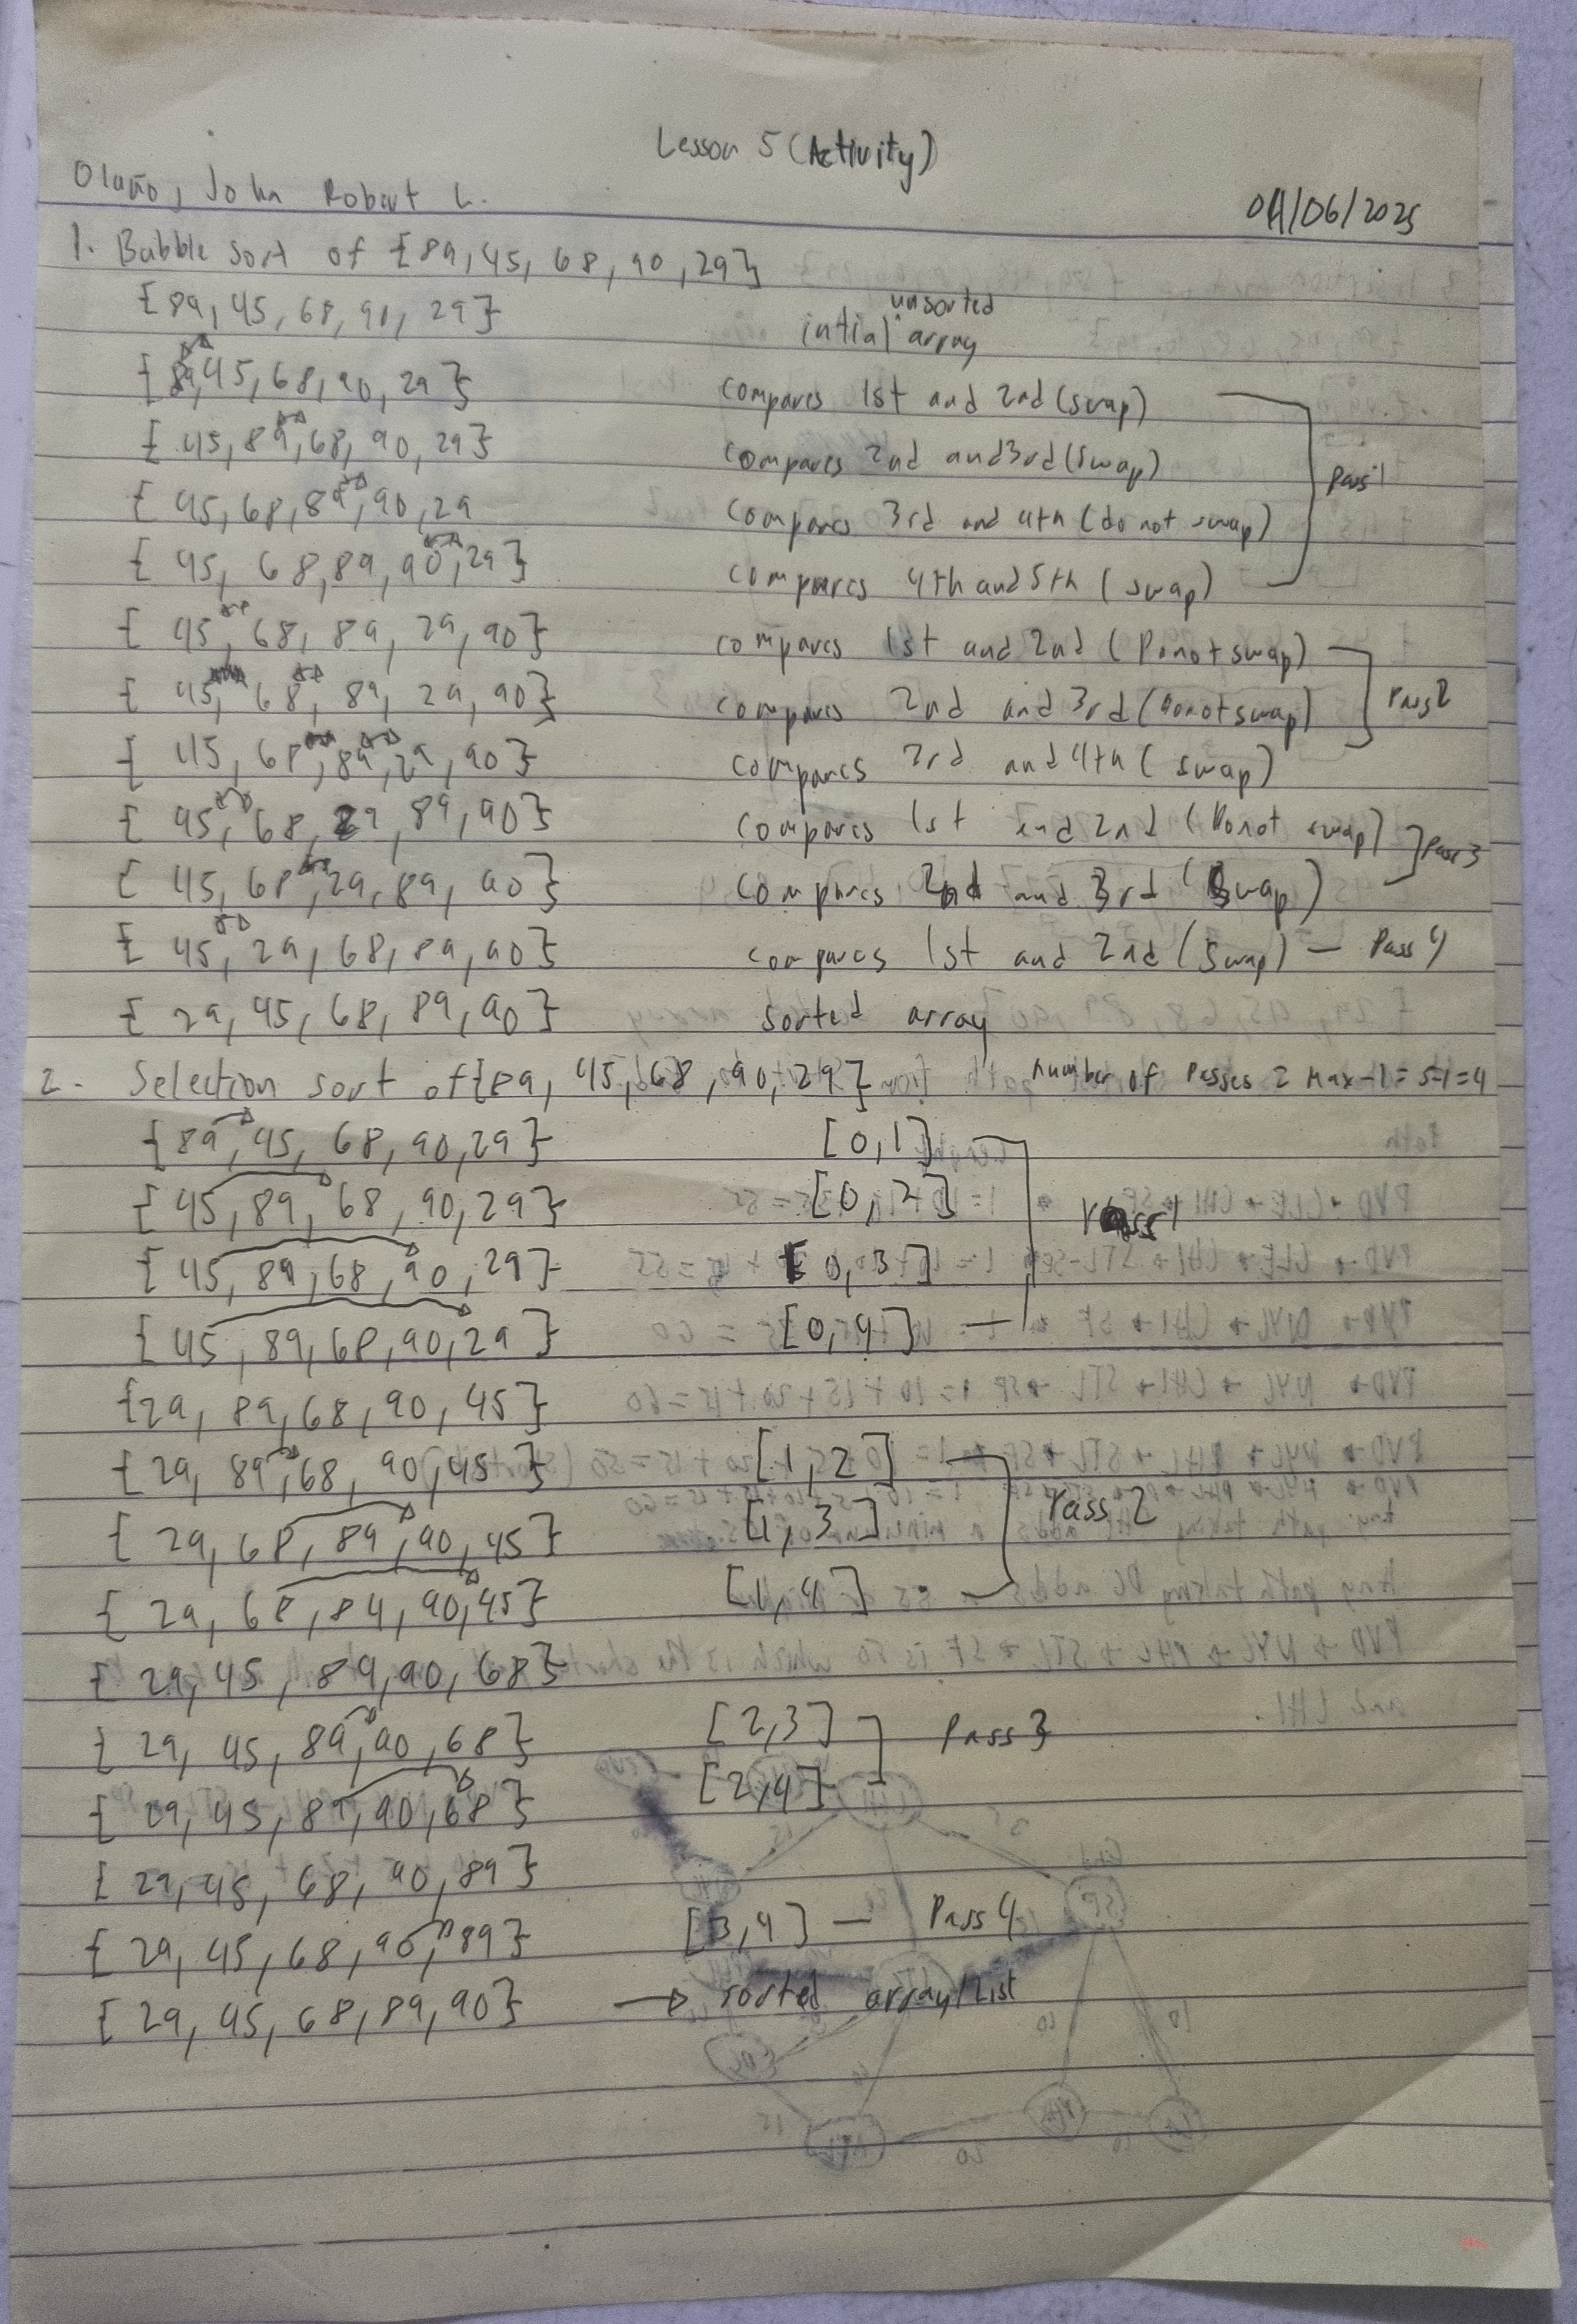 Lesson 5 (Activity)
Olaño, John Robert L.
04/06/2025
1. Bubble sort of {89, 45, 68, 90, 29}
{89, 45, 68, 90, 29} intial unsorted array
{89, 45, 68, 90, 29} compares 1st and 2nd (swap)
{45, 89, 68, 90, 29} compares 2nd and 3rd (swap) Pass 1
{45, 68, 89, 90, 29 compares 3rd and 4th (do not swap)
{45, 68, 89, 90, 29} compares 4th and 5th (swap)
{45, 68, 89, 29, 90} compares 1st and 2nd (Donot swap)
{45, 68, 89, 29, 90} compares 2nd and 3rd (Donot swap) Pass 2
{45, 68, 89, 29, 90} compares 3rd and 4th (swap)
{45, 68, 29, 89, 90} compares 1st and 2nd (Donot swap) Pass 3
{45, 68, 29, 89, 90} compares 2nd and 3rd (swap)
{45, 29, 68, 89, 90} compares 1st and 2nd (swap) — Pass 4
{29, 45, 68, 89, 90} sorted array
2. Selection sort of {89, 45, 68, 90, 29} number of Passes = Max-1 = 5-1=4
{89, 45, 68, 90, 29} [0,1]
{45, 89, 68, 90, 29} [0,2] Pass 1
{45, 89, 68, 90, 29} [0,3]
{45, 89, 68, 90, 29} [0,4]
{29, 89, 68, 90, 45}
{29, 89, 68, 90, 45} [1,2]
{29, 68, 89, 90, 45} [1,3] Pass 2
{29, 68, 84, 90, 45} [1,4]
{29, 45, 89, 90, 68}
{29, 45, 89, 90, 68} [2,3] Pass 3
{29, 45, 89, 90, 68} [2,4]
{29, 45, 68, 90, 89}
{29, 45, 68, 90, 89} [3,4] — Pass 4
{29, 45, 68, 89, 90} → sorted array/list